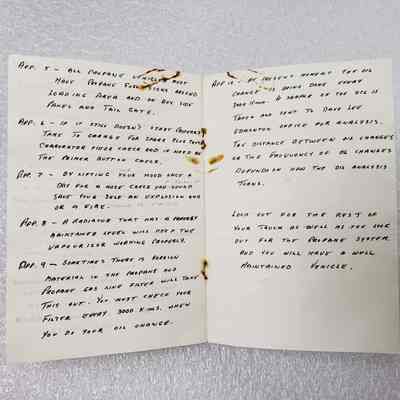 APP. 5 - ALL PROPANE VEHICLES MUST
HAVE PROPANE STICKERS AROUND
LOADING AREA AND ON BOX SIDE
PANELS AND TAIL GATE.
APP. 6 - IF IT STILL DOESN'T START PROPERLY
TAKE TO GARAGE FOR SPARK PLUG TUNE
CARBURATOR FIRES CHECK AND IF NEED BE
THE PRIMER BUTTON CHECK.
APP. 7 - BY LIFTING YOUR HOOD ONCE A
DAY FOR A HOSE CHECK YOU COULD
SAVE YOUR SELF AN EXPLOSION AND
OR A FIRE.
APP. 8 - A RADIATOR THAT HAS A PROPERLY
MAINTAINED LEVEL WILL KEEP THE
VAPOURIZOR WORKING PROPERLY.
APP. 9 - SOMETIMES THERE IS FOREIGN
MATERIAL IN THE PROPANE AND
PROPANE GAS LINE FILTER WILL TAKE
THIS OUT. YOU MUST CHECK YOUR
FILTER EVERY 3000 K.MS. WHEN
YOU DO YOUR OIL CHANGE.
APP 10 - AT PRESENT MOMENT THE OIL
CHANGE IS BEING DONE EVERY
3000 KMS. A SAMPLE OF THE OIL IS
TAKEN AND SENT TO DAVE LEE
EDMONTON OFFICE FOR ANALYSIS.
THE DISTANCE BETWEEN OIL CHANGES
OR THE FREQUENCY OF OIL CHANGES
DEPENDS ON HOW THE OIL ANALYSIS
TURNS.
LOOK OUT FOR THE REST OF
YOUR TRUCK AS WELL AS YOU LOOK
OUT FOR THE PROPANE SYSTEM
AND YOU WILL HAVE A WELL
MAINTAINED VEHICLE.